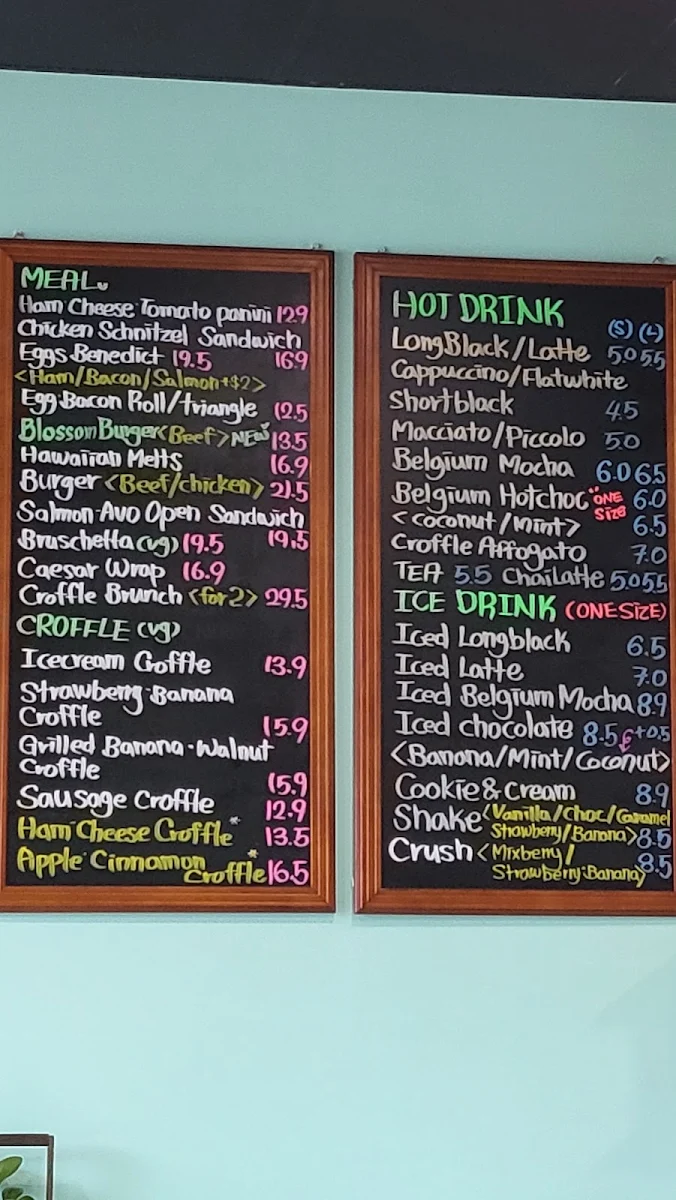 MEAL
Ham Cheese Tomato panini 12.9
Chicken Schnitzel Sandwich
Eggs Benedict 19.5 16.9
<Ham/Bacon/Salmon+$2>
Egg Bacon Roll/triangle 12.5
Blossom Burger <Beef> NEW 13.5
Hawaiian Melts 16.9
Burger <Beef/chicken> 21.5
Salmon Avo Open Sandwich
Bruschetta (vg) 19.5 19.5
Caesar Wrap 16.9
Croffle Brunch <for 2> 29.5
CROFFLE (vg)
Icecream Croffle 13.9
Strawberry Banana
Croffle 15.9
Grilled Banana·Walnut
Croffle 15.9
Sausage Croffle 12.9
Ham Cheese Croffle 13.5
Apple Cinnamon
Croffle 16.5
HOT DRINK (S) (L)
Long Black/Latte 5.0 5.5
Cappuccino/Flatwhite
Short black 4.5
Macciato/Piccolo 5.0
Belgium Mocha 6.0 6.5
Belgium Hotchoc ONE SIZE 6.0
<coconut/mint> 6.5
Croffle Affogato 7.0
TEA 5.5 Chai Latte 5.0 5.5
ICE DRINK (ONE SIZE)
Iced Longblack 6.5
Iced Latte 7.0
Iced Belgium Mocha 8.9
Iced chocolate 8.5 +0.5
<Banana/Mint/Coconut>
Cookie & Cream 8.9
Shake <Vanilla/Choc/Caramel
Strawberry/Banana> 8.5
Crush <Mixberry/
Strawberry·Banana> 8.5